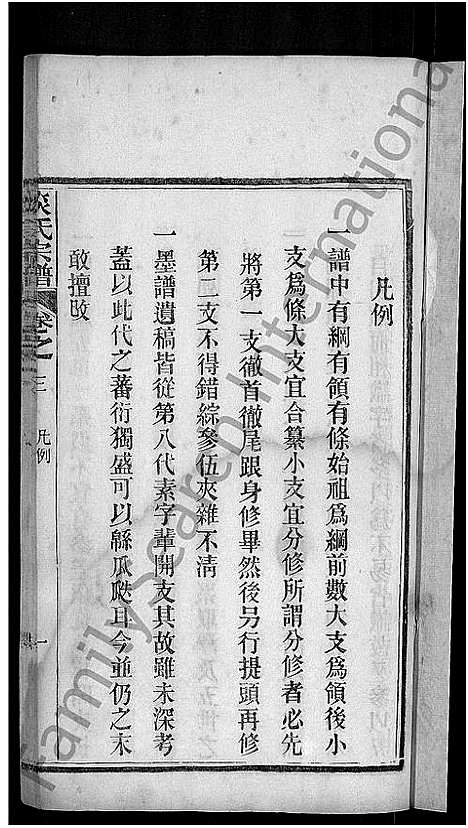 凡例
一譜中有綱有領有條始祖爲綱前數大支爲領後小
支爲條大支宜合纂小支宜分修所謂分修者必先
將第一支徹首徹尾跟身修畢然後另行提頭再修
第二支不得錯綜參伍夾雜不清
一墨譜遺稿皆從第八代素字輩開支其故雖未深考
蓋以此代之蕃衍獨盛可以緜瓜瓞耳今並仍之未
敢擅改
氏宗譜
卷之三
凡例
一
FamilySearch International